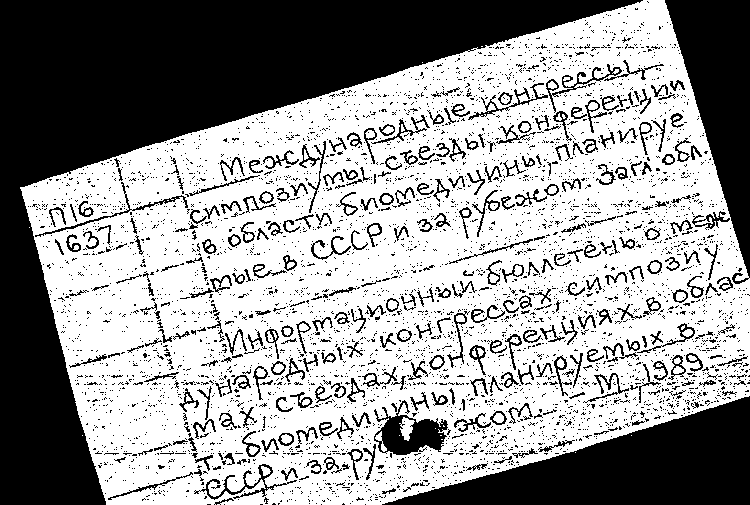 П16
1637
Международные конгрессы,
симпозиумы, съезды, конференции
в области биомедицины, планируе
мые в СССР и за рубежом. Загл. обл.
Информационный бюллетень о меж
дународных конгрессах, симпозиу
мах, съездах, конференциях в облас
ти биомедицины, планируемых в
СССР и за рубежом. – М., 1989 –